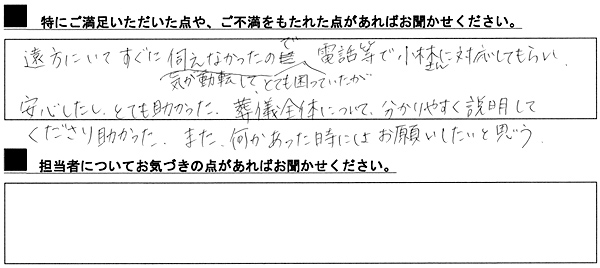 ■ 特にご満足いただいた点や、ご不満をもたれた点があればお聞かせください。
遠方にいてすぐに伺えなかったので 電話等で小林さんに対応してもらい、
気が動転して、とても困っていたが
安心したし、とても助かった。葬儀全体について、分かりやすく説明して
くださり助かった。また、何かあった時にはお願いしたいと思う。
■ 担当者についてお気づきの点があればお聞かせください。